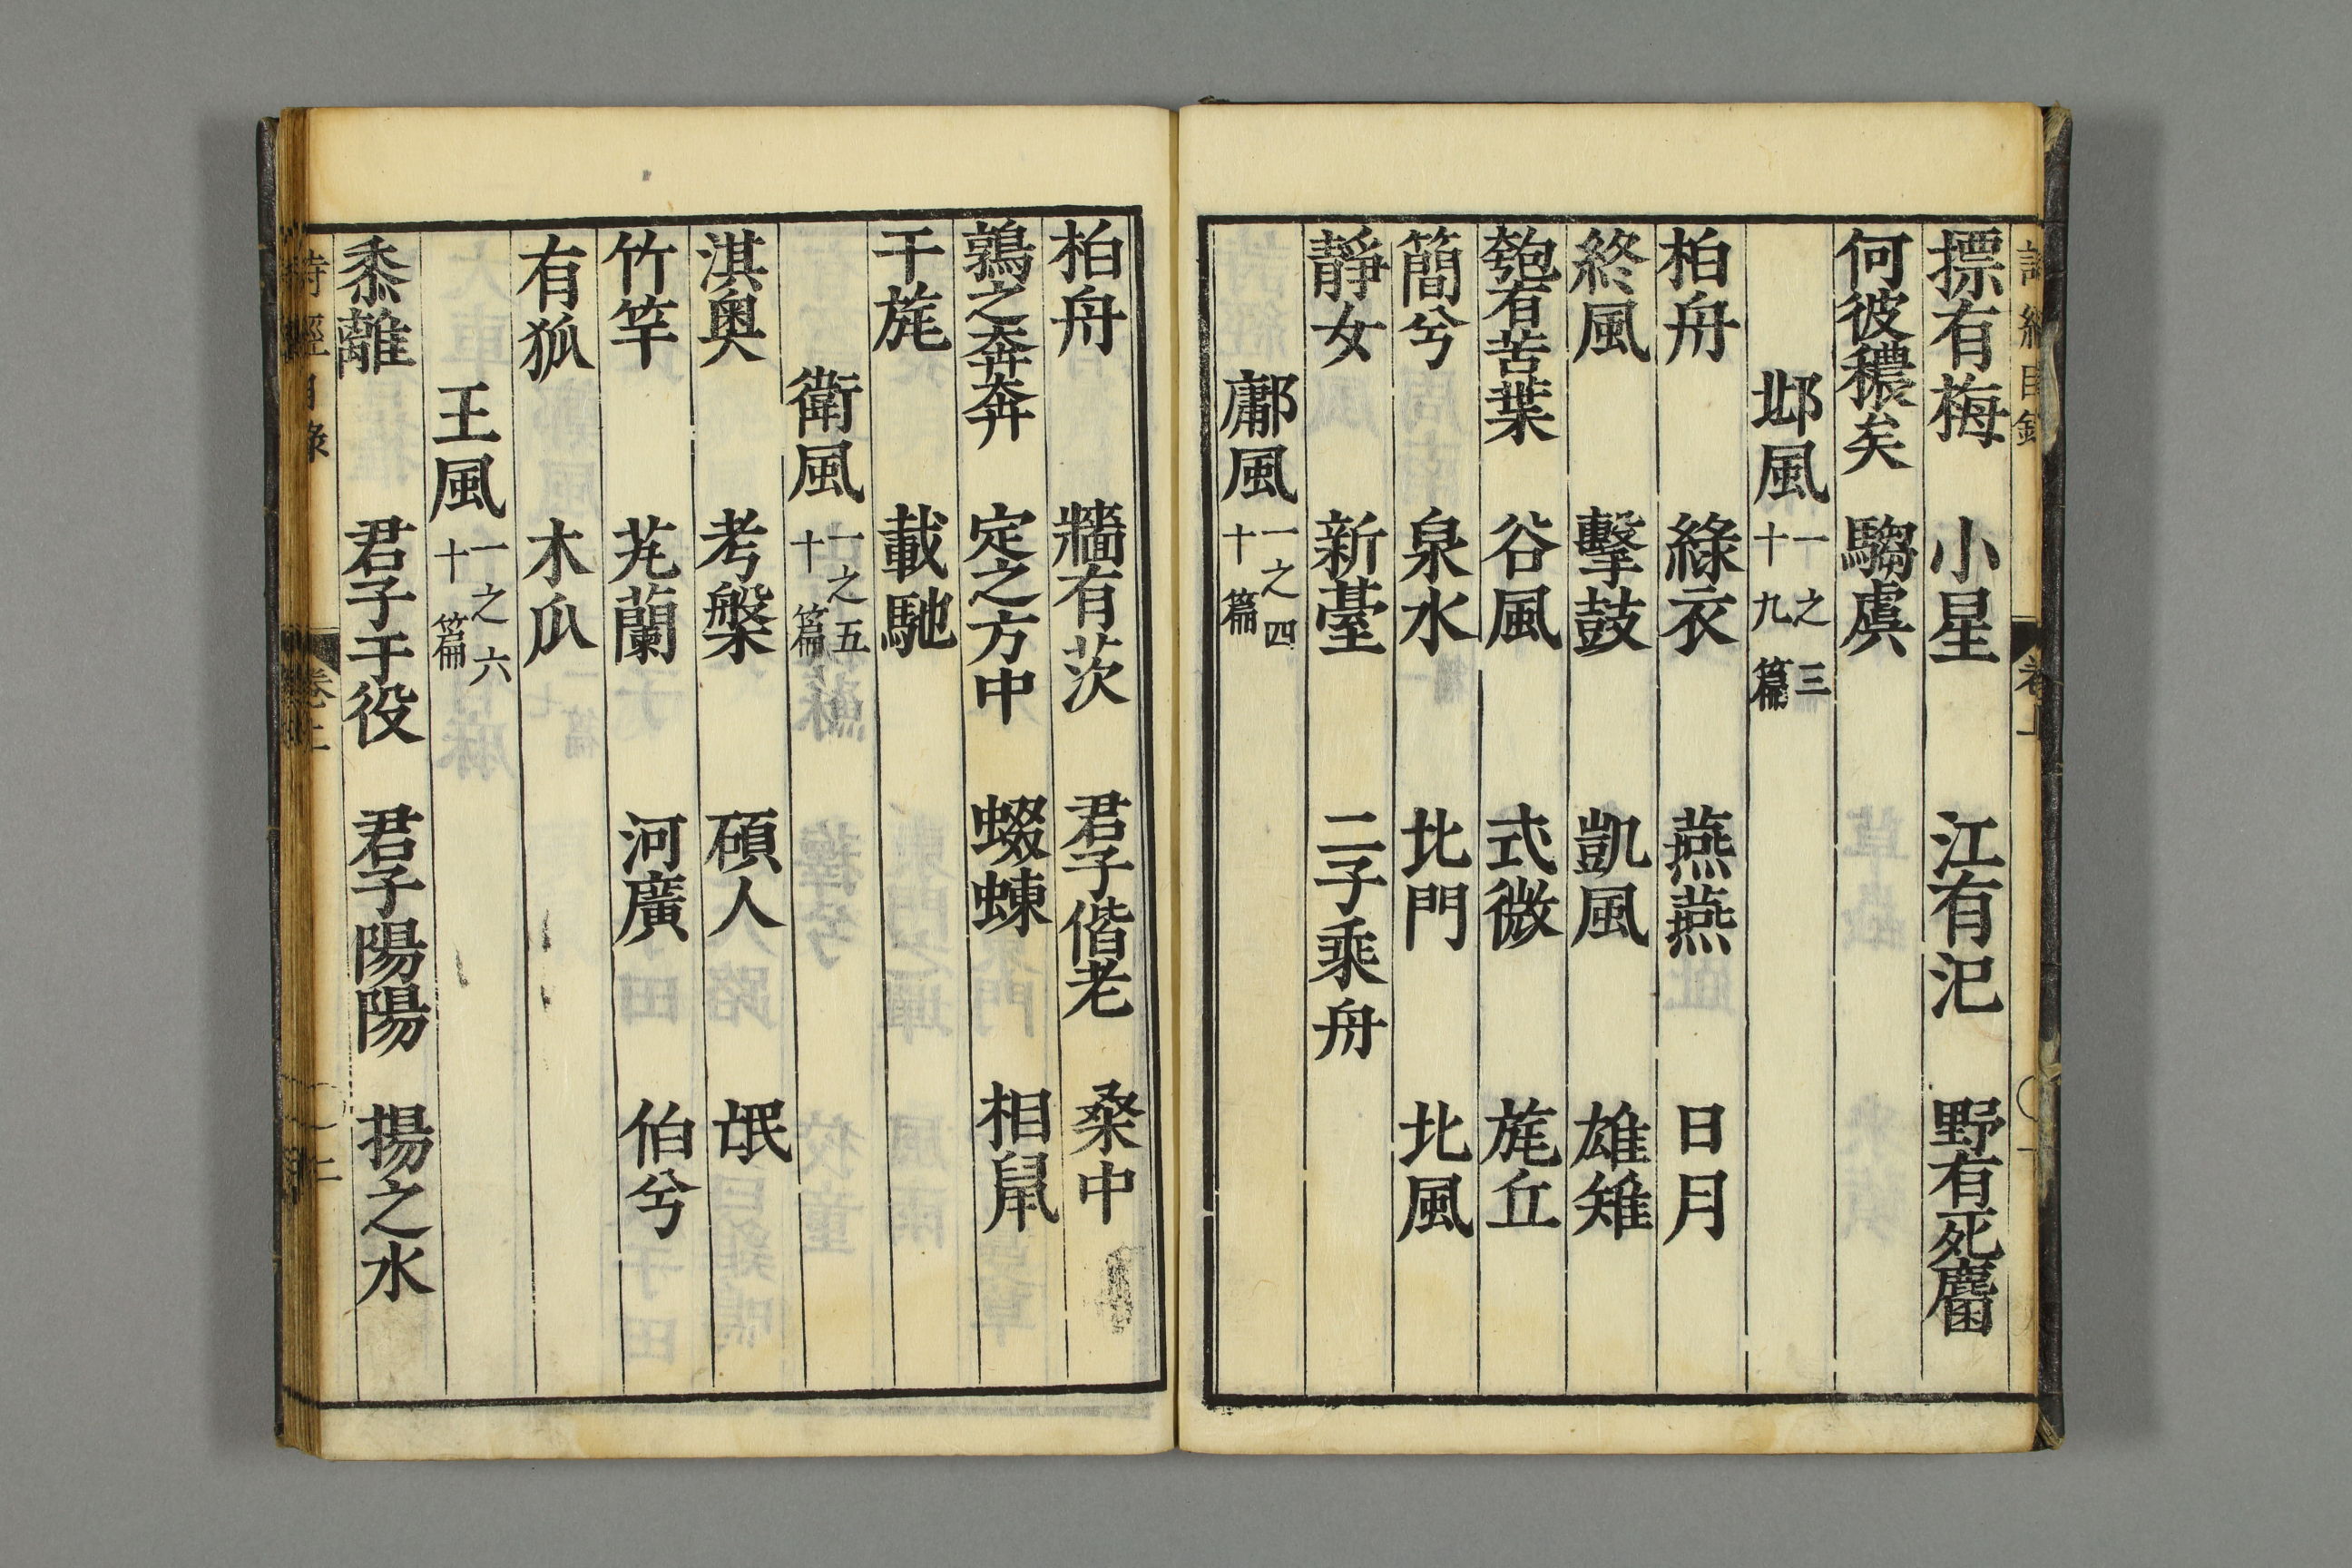 摽有梅 小星 江有汜 野有死麕
何彼穠矣 騶虞
邶風 一之三 十九篇
柏舟 綠衣 燕燕 日月
終風 擊鼓 凱風 雄雉
匏有苦葉 谷風 式微 旄丘
簡兮 泉水 北門 北風
靜女 新臺 二子乘舟
鄘風 一之四 十篇
柏舟 牆有茨 君子偕老 桑中
鶉之奔奔 定之方中 蝃蝀 相鼠
干旄 載馳
衛風 一之五 十篇
淇奧 考槃 碩人 氓
竹竿 芄蘭 河廣 伯兮
有狐 木瓜
王風 一之六 十篇
黍離 君子于役 君子陽陽 揚之水
詩經目錄